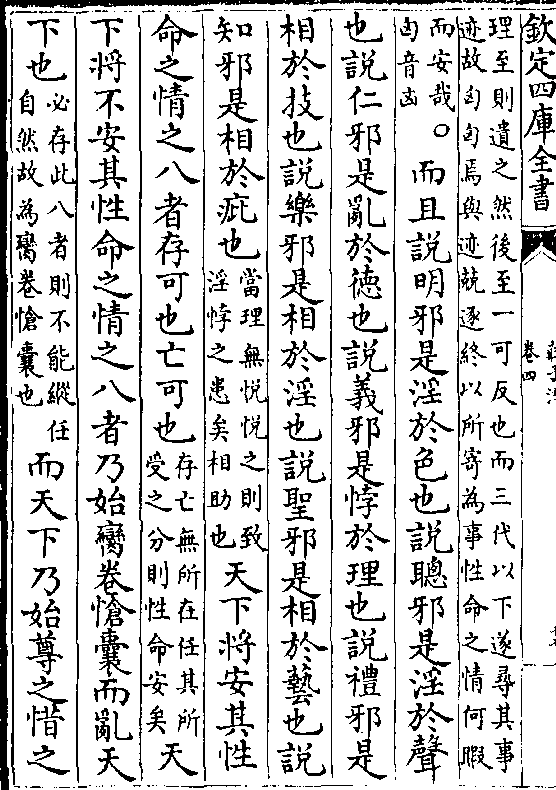 欽定四庫全書
卷四
理至則遺之然後至一可反也而三代以下遂尋其事
迹故匈匈焉與迹競逐終以所寄為事性命之情何暇
而安哉○
匈音凶
而且說明邪是淫於色也說聰邪是淫於聲
也說仁邪是亂於德也說義邪是悖於理也說禮邪是
相於技也說樂邪是相於淫也說聖邪是相於藝也說
知邪是相於疵也
當理無悅悅之則致
淫悖之患矣相助也
天下將安其性
命之情之八者存可也亡可也
存亡無所在任其所
受之分則性命安矣
天
下將不安其性命之情之八者乃始臠卷愴囊而亂天
下也
必存此八者則不能縱任
自然故為臠卷愴囊也
而天下乃始尊之惜之